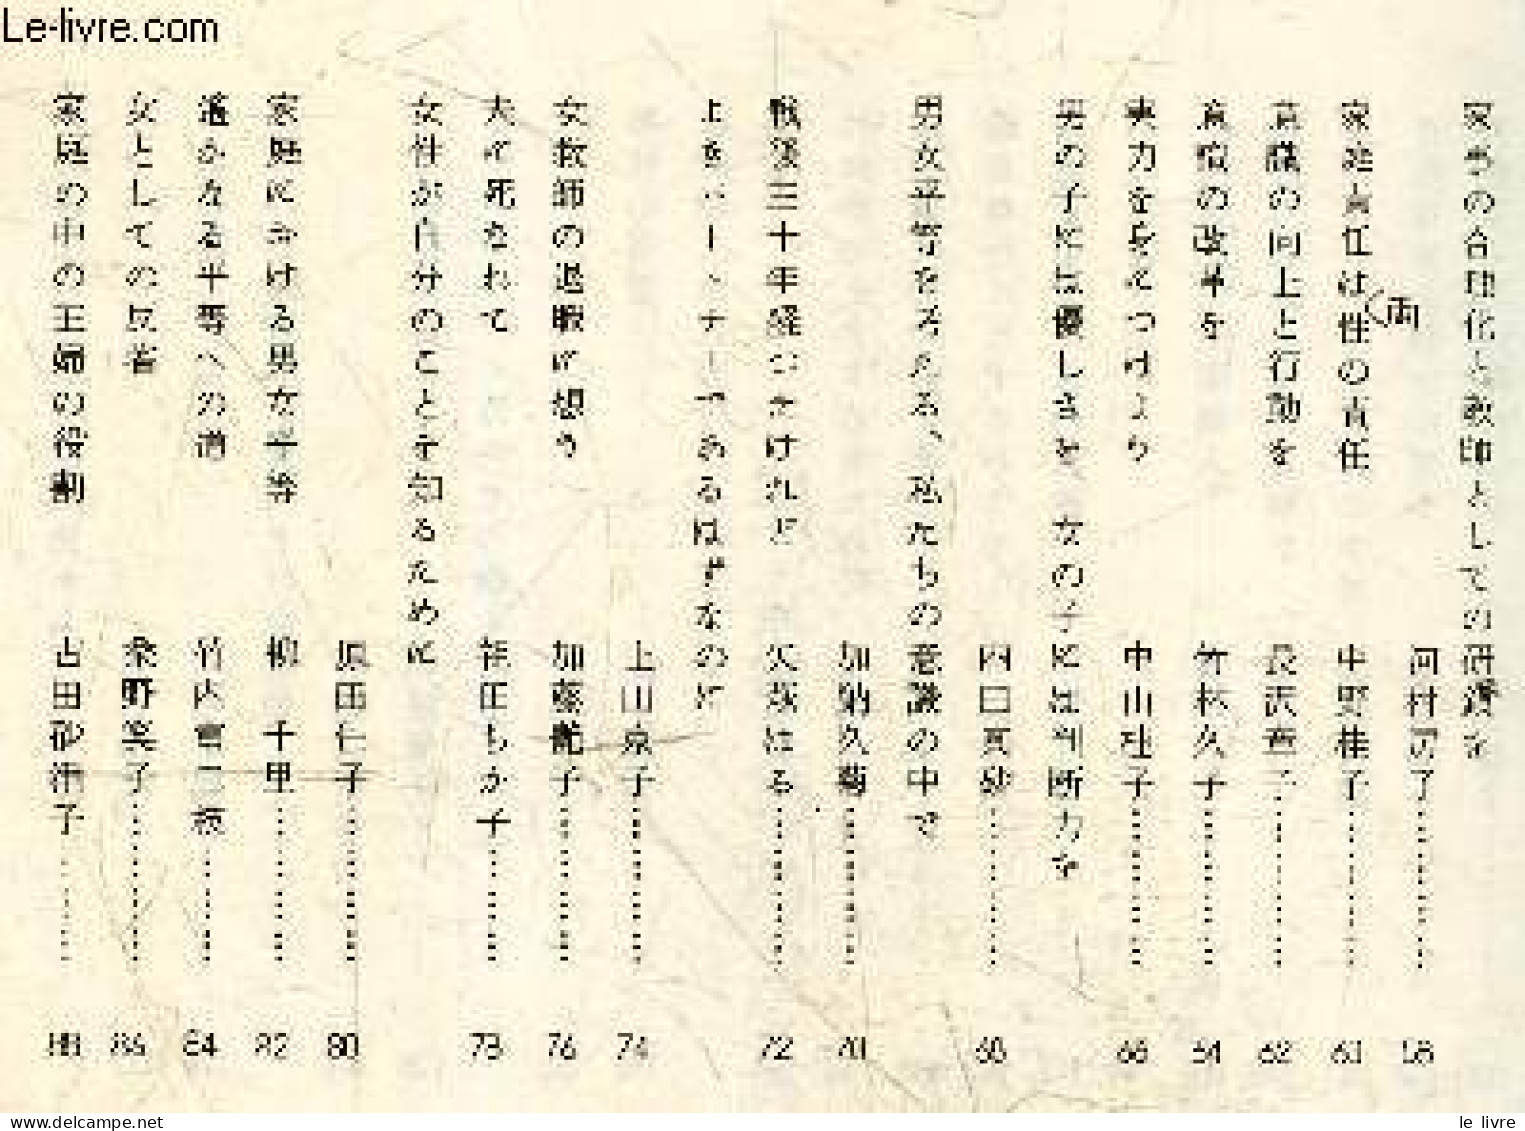 Le-livre.com
家事の合理化と教師としての研鑽を
河村房子…………58
家庭責任は両性の責任
中野桂子…………60
意識の向上と行動を
長沢…子…………62
意識の改革を
若林久子…………64
実力を身につけよう
中山玲子…………66
男の子には優しさを、女の子には判断力を
四田真砂…………68
男女平等をさえぎる、私たちの意識の中で
加納久菊…………70
戦後三十年経つたけれど
矢萩はる…………72
よきパートナーであるはずなのに
上山泉子…………74
女教師の退職に想う
加藤艶子…………76
夫に死なれて
福田もか子…………78
女性が自分のことを知るために
原田仁子…………80
家庭における男女平等
柳 千里…………82
遙かなる平等への道
竹内貴…………84
女としての反省
桑野…子…………86
家庭の中の主婦の役割
古田…子…………88
www.delcampe.net
le livre